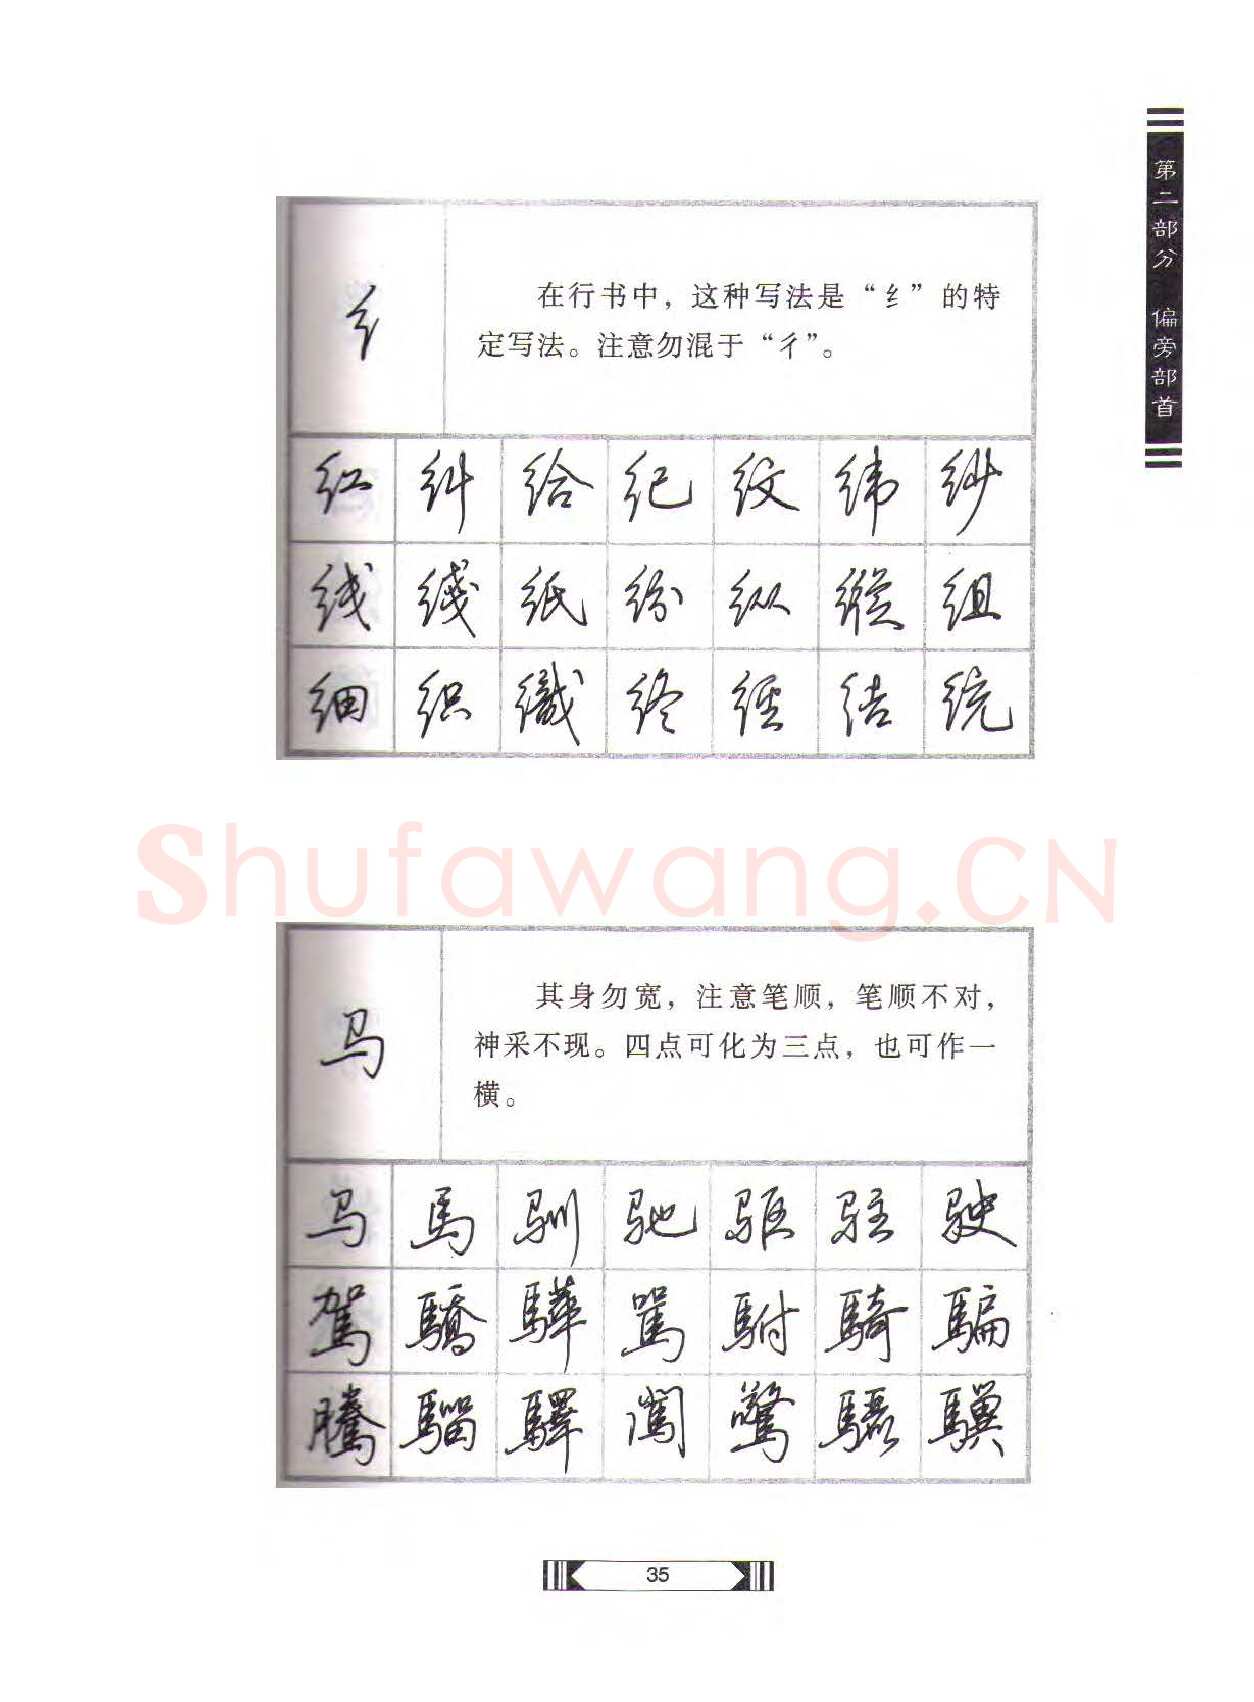 第二部分 偏旁部首
纟
在行书中，这种写法是“纟”的特
定写法。注意勿混于“彳”。
红 纠 给 纪 纹 纬 纱
线 綫 纸 纷 纵 組
细 织 織 终 经 结 统
Shufawang.CN
马
其身勿宽，注意笔顺，笔顺不对，
神采不现。四点可化为三点，也可作一
横。
马 馬 驯 驰 驱 驻 驶
駕 驕 驊 駡 駙 騎 騙
騰 騮 驛 闖 驚 騷 驥
35